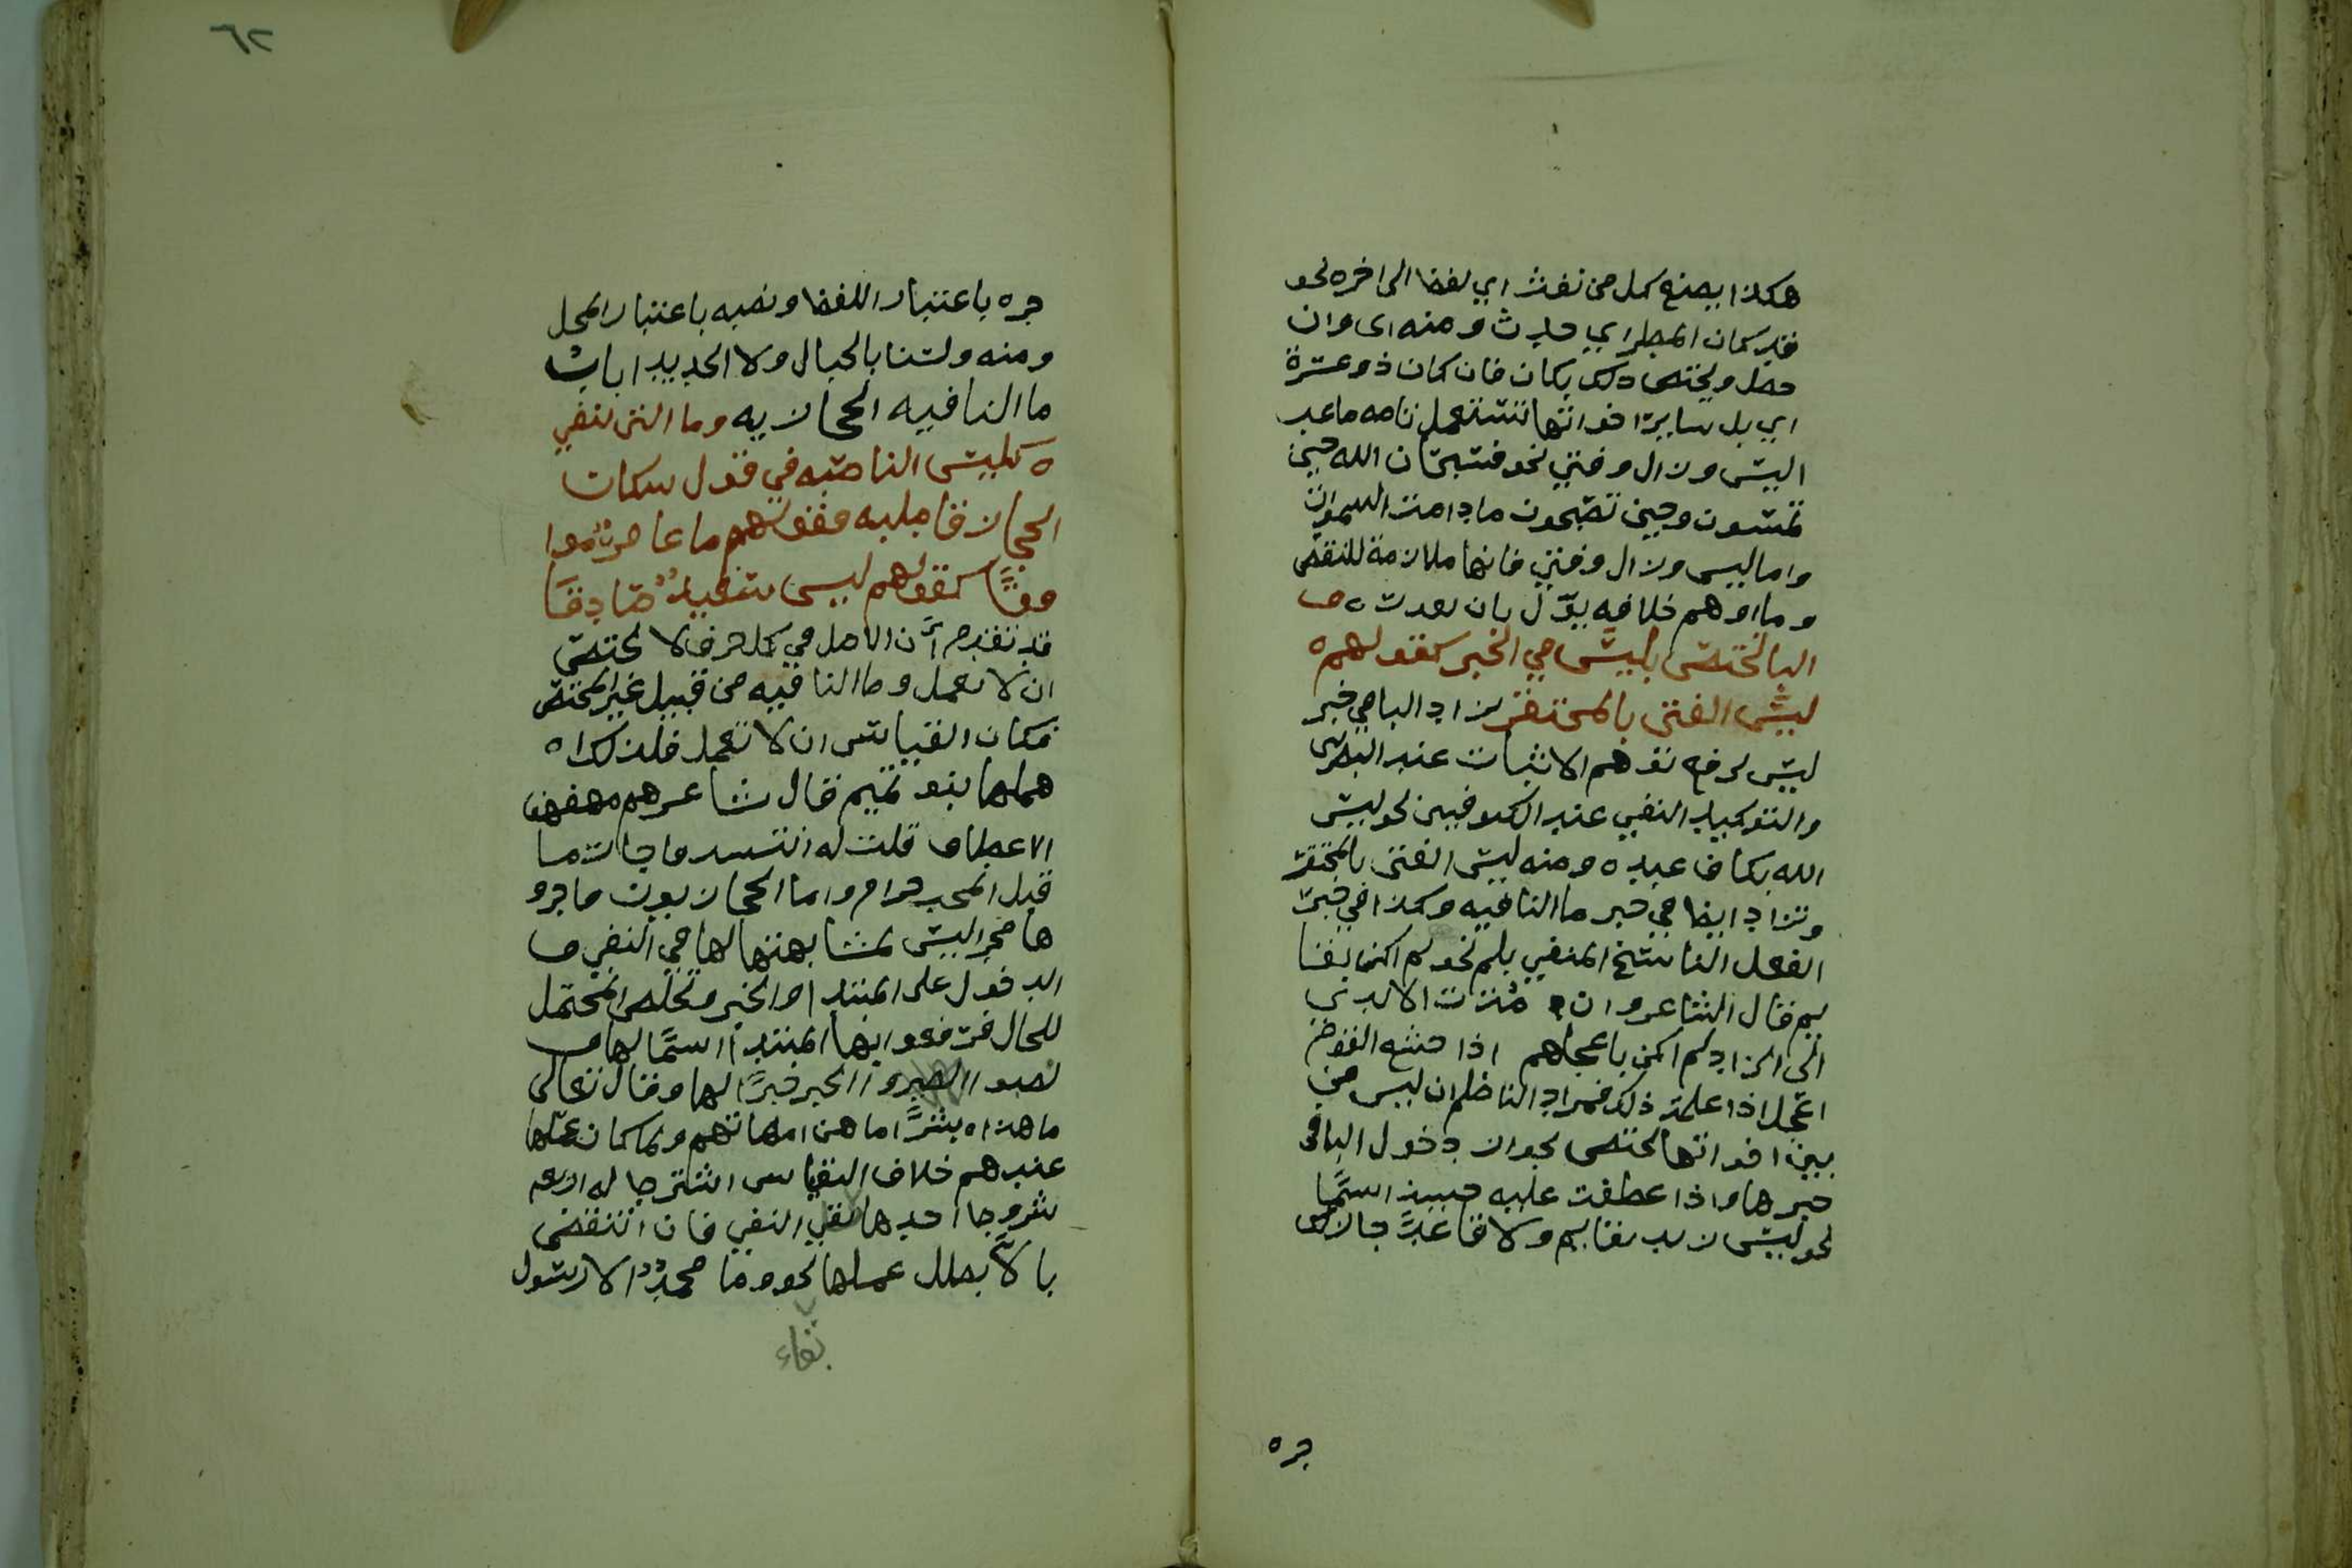 هكذا يصنع كل من نفث اي لفظا الى اخره نحو
قد كان المطر اي حدث ومنه اى وان
حصل ويختص ذلك بكان فان كان ذو عسرة
اي بل ساير اخواتها تستعمل تامه ما عدا
ليس وزال وفتئ نحو فسبحان الله حين
تمسون وحين تصبحون ما دامت السموات
واما ليس وزال وفتئ فانها ملازمة للنقص
وما اوهم خلافه يؤل بان
البا تختص بليس في الخبر كقولهم
ليس الفتى بالمحتقر زاد البا في خبر
ليس لرفع توهم الاثبات عند البصرى
والتوكيد النفي عند الكوفيين نحو ليس
الله بكاف عبده ومنه ليس الفتى بالمحتقر
وتزاد ايضا في خبر ما النافيه وكذا في خبر
الفعل الناسخ المنفي بلم نحو لم اكن بقا
يم قال الشاعر وان مدت الايدي
الى الزاد لم اكن باعجلهم اذا
اعجل اذا علمت ذلك فمراد الناظم ان ليس من
بين اخواتها تختص بجواز دخول البا في
خبرها واذا عطفت عليه حينيذ اسمًا
نحو ليس زيد بقايم ولا قاعد جاز لك
جره
٦٢
جره باعتبار اللفظ ونصبه باعتبار المحل
ومنه ولسنا بالجبال ولا الحديدا باب
ما النافيه الحجازيه وما التى تنفي
كليس الناصبه في قول سكان
الحجاز قاطبه فقولهم ما عامر موا
فقًا كقولهم ليس سعيد صادقا
قد تقدم أن الاصل في كل حرف لا يختص
ان لا يعمل وما النافيه من قبيل غير المختص
فكان القياس ان لا تعمل فلذلك ا
هملها بنو تميم قال شاعرهم ومهفهف
الاعطاف قلت له انتسب فاجاب ما
قتل المحب حرام واما الحجازيون فاجرو
ها مجرا ليس لمشابهتها لها في النفي و
الدخول على المبتدا والخبر وتخلص المحتمل
للحال فرفعوا بها المبتدا اسمًا لها و
نصبوا الخبر خبرًا لها وقال تعالى
ما هذا بشرًا ما هن امهاتهم ولما كان عملها
عندهم خلاف القياس اشترطا له اربعه
شروط احدها بقي النفي فان انتقض
بالاّ بطل عملها نحو وما محمد الا رسول
بقاء